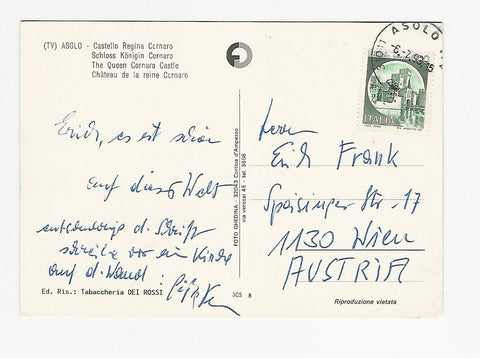 (TV) ASOLO - Castello Regina Cornaro
Schloss Königin Cornaro
The Queen Cornaro Castle
Château de la reine Cornaro
Erich, es ist schön
auf dieser Welt
d. Schrift
schreibe ein Kirche
auf d. Wand:
Ed. Ris.: Tabaccheria DEI ROSSI
305 8
FOTO GHEDINA - 32043 Cortina d'Ampezzo
via verocai 45 - tel. 3606
ASOLO
ITALIA
Herrn
Erich Frank
Speisinger Str. 17
1130 Wien
AUSTRIA
Riproduzione vietata